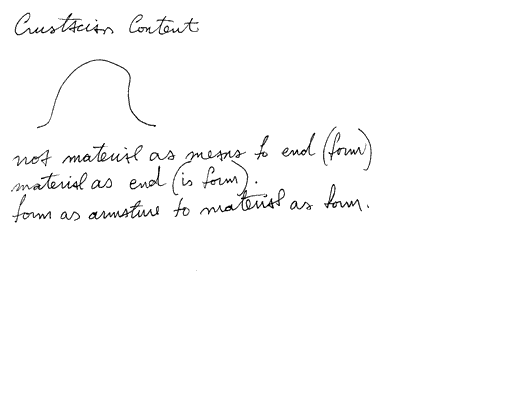 Crustacian Content
not material as means to end (form)
material as end (is form).
form as armature to material as form.